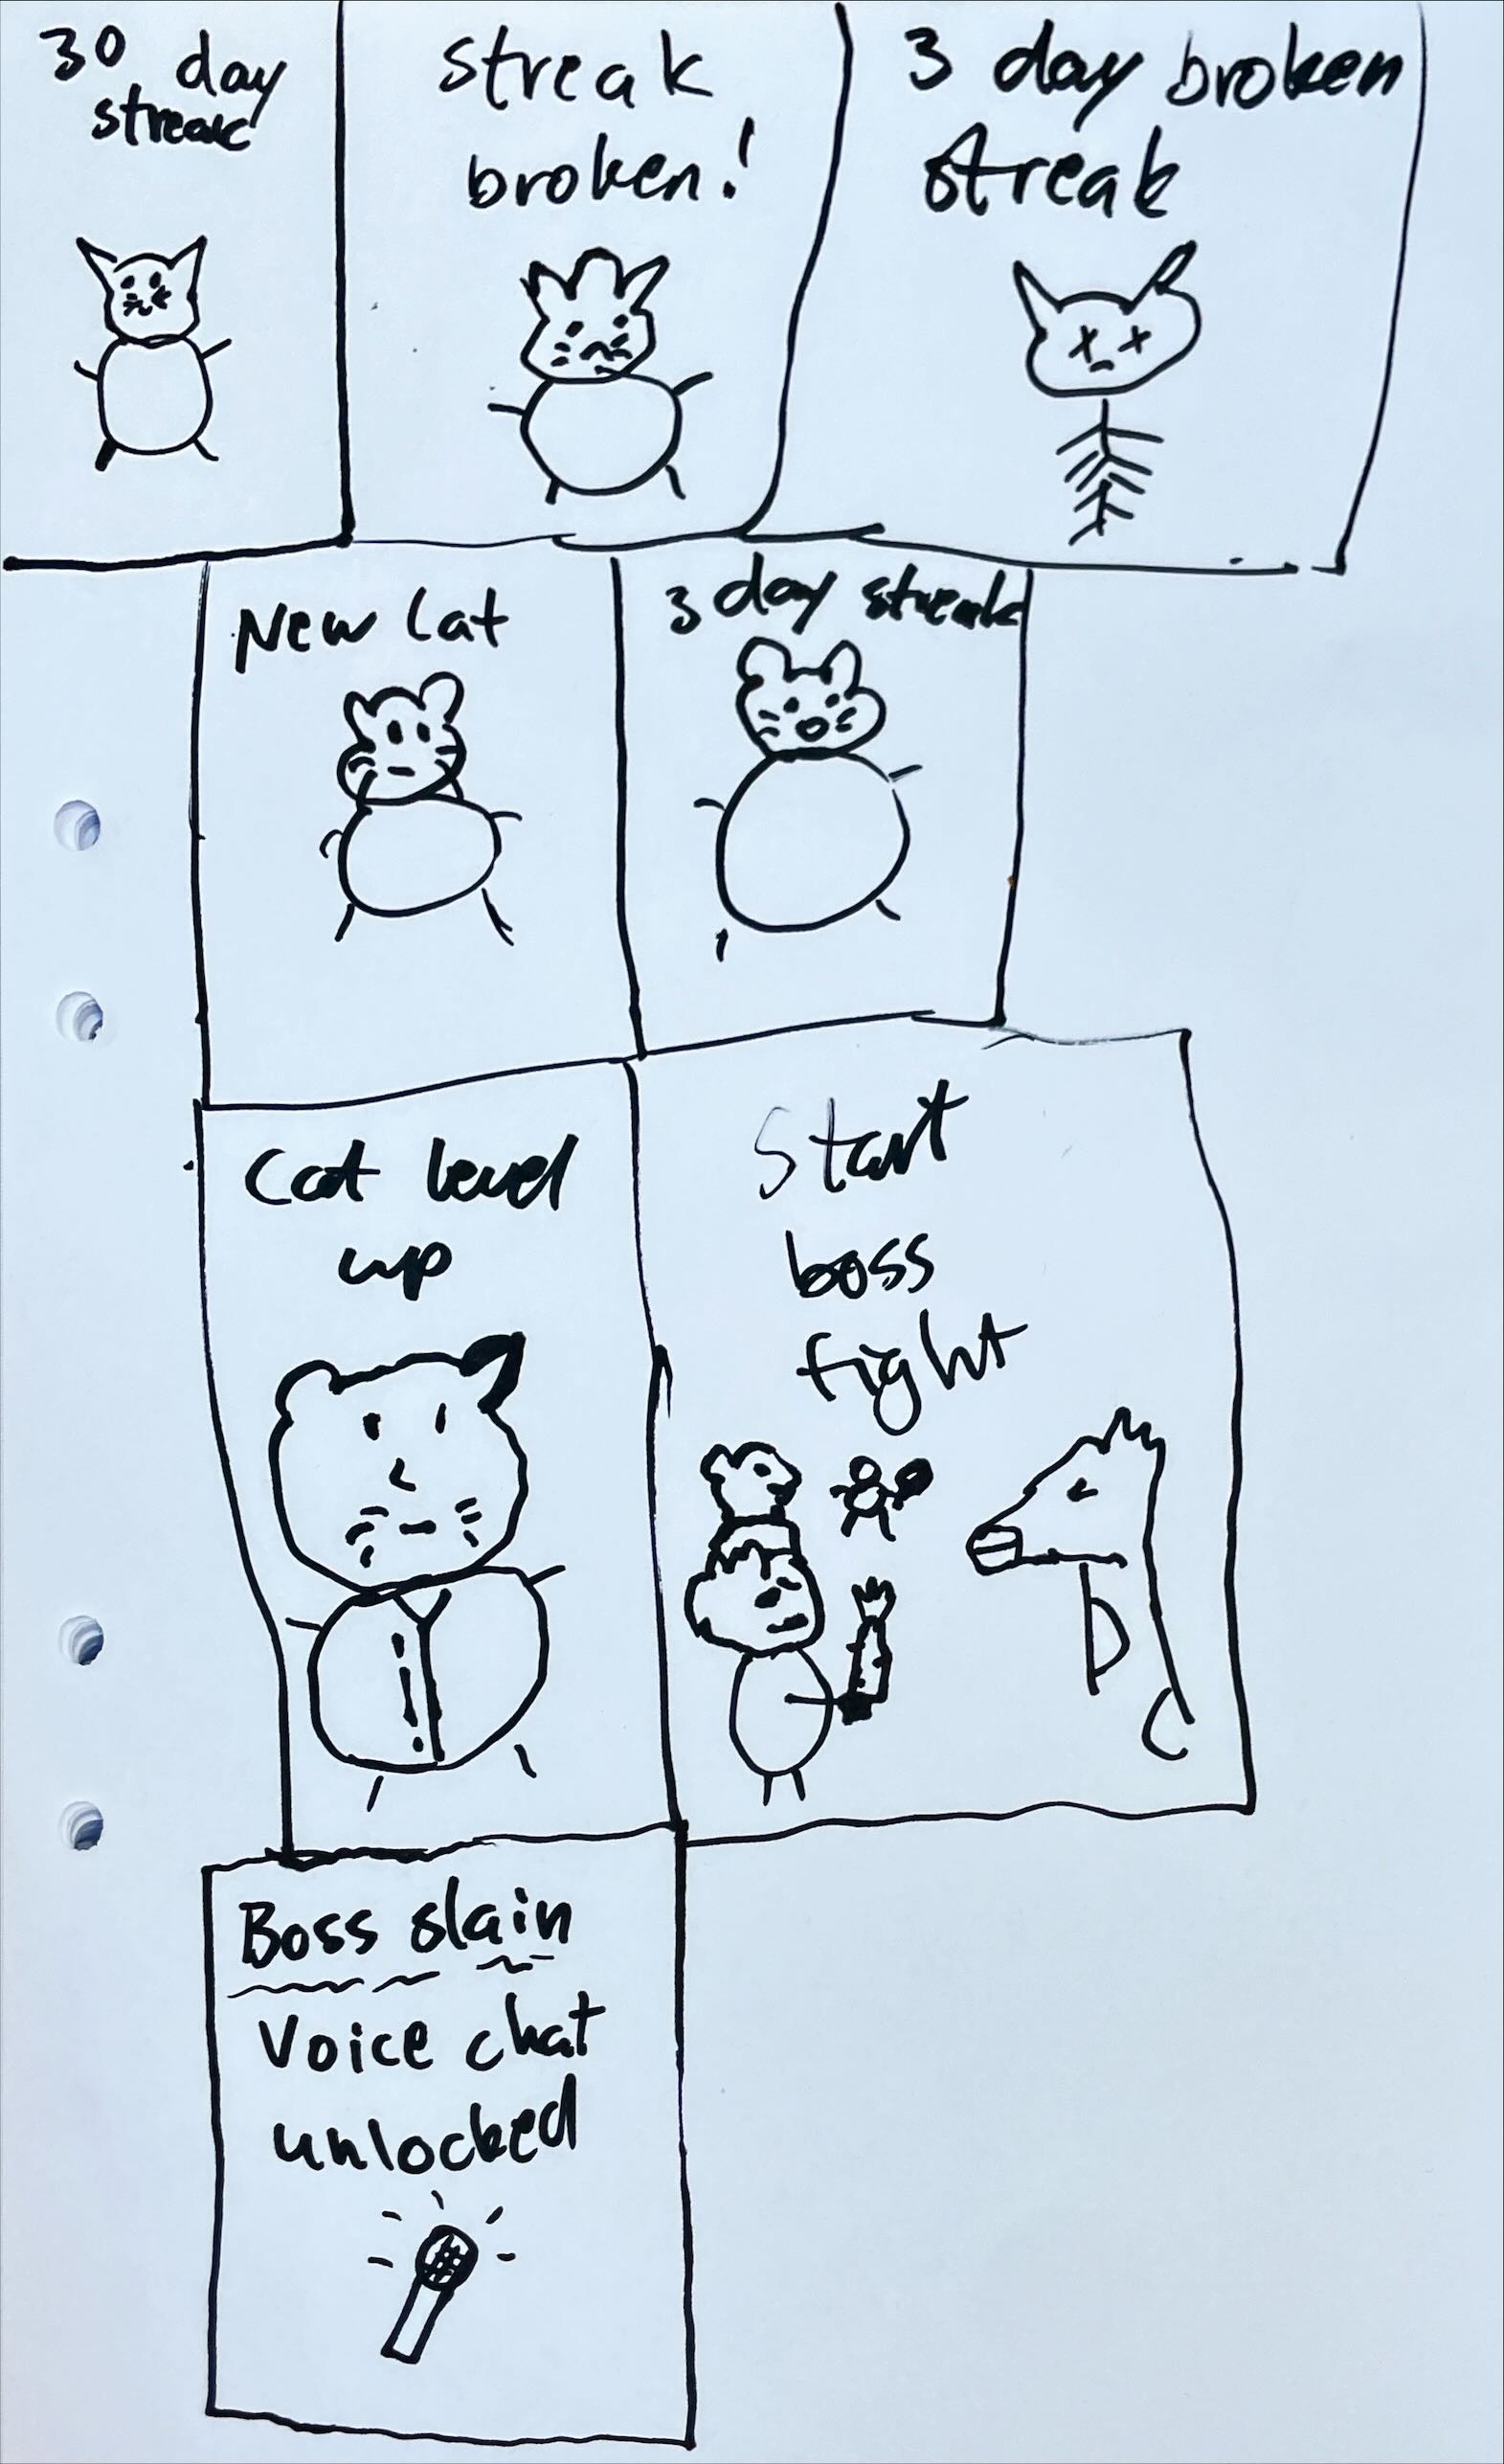 30 day
streak
streak
broken!
3 day broken
streak
New Cat
3 day streak
Cat level
up
Start
boss
fight
Boss slain
Voice chat
unlocked